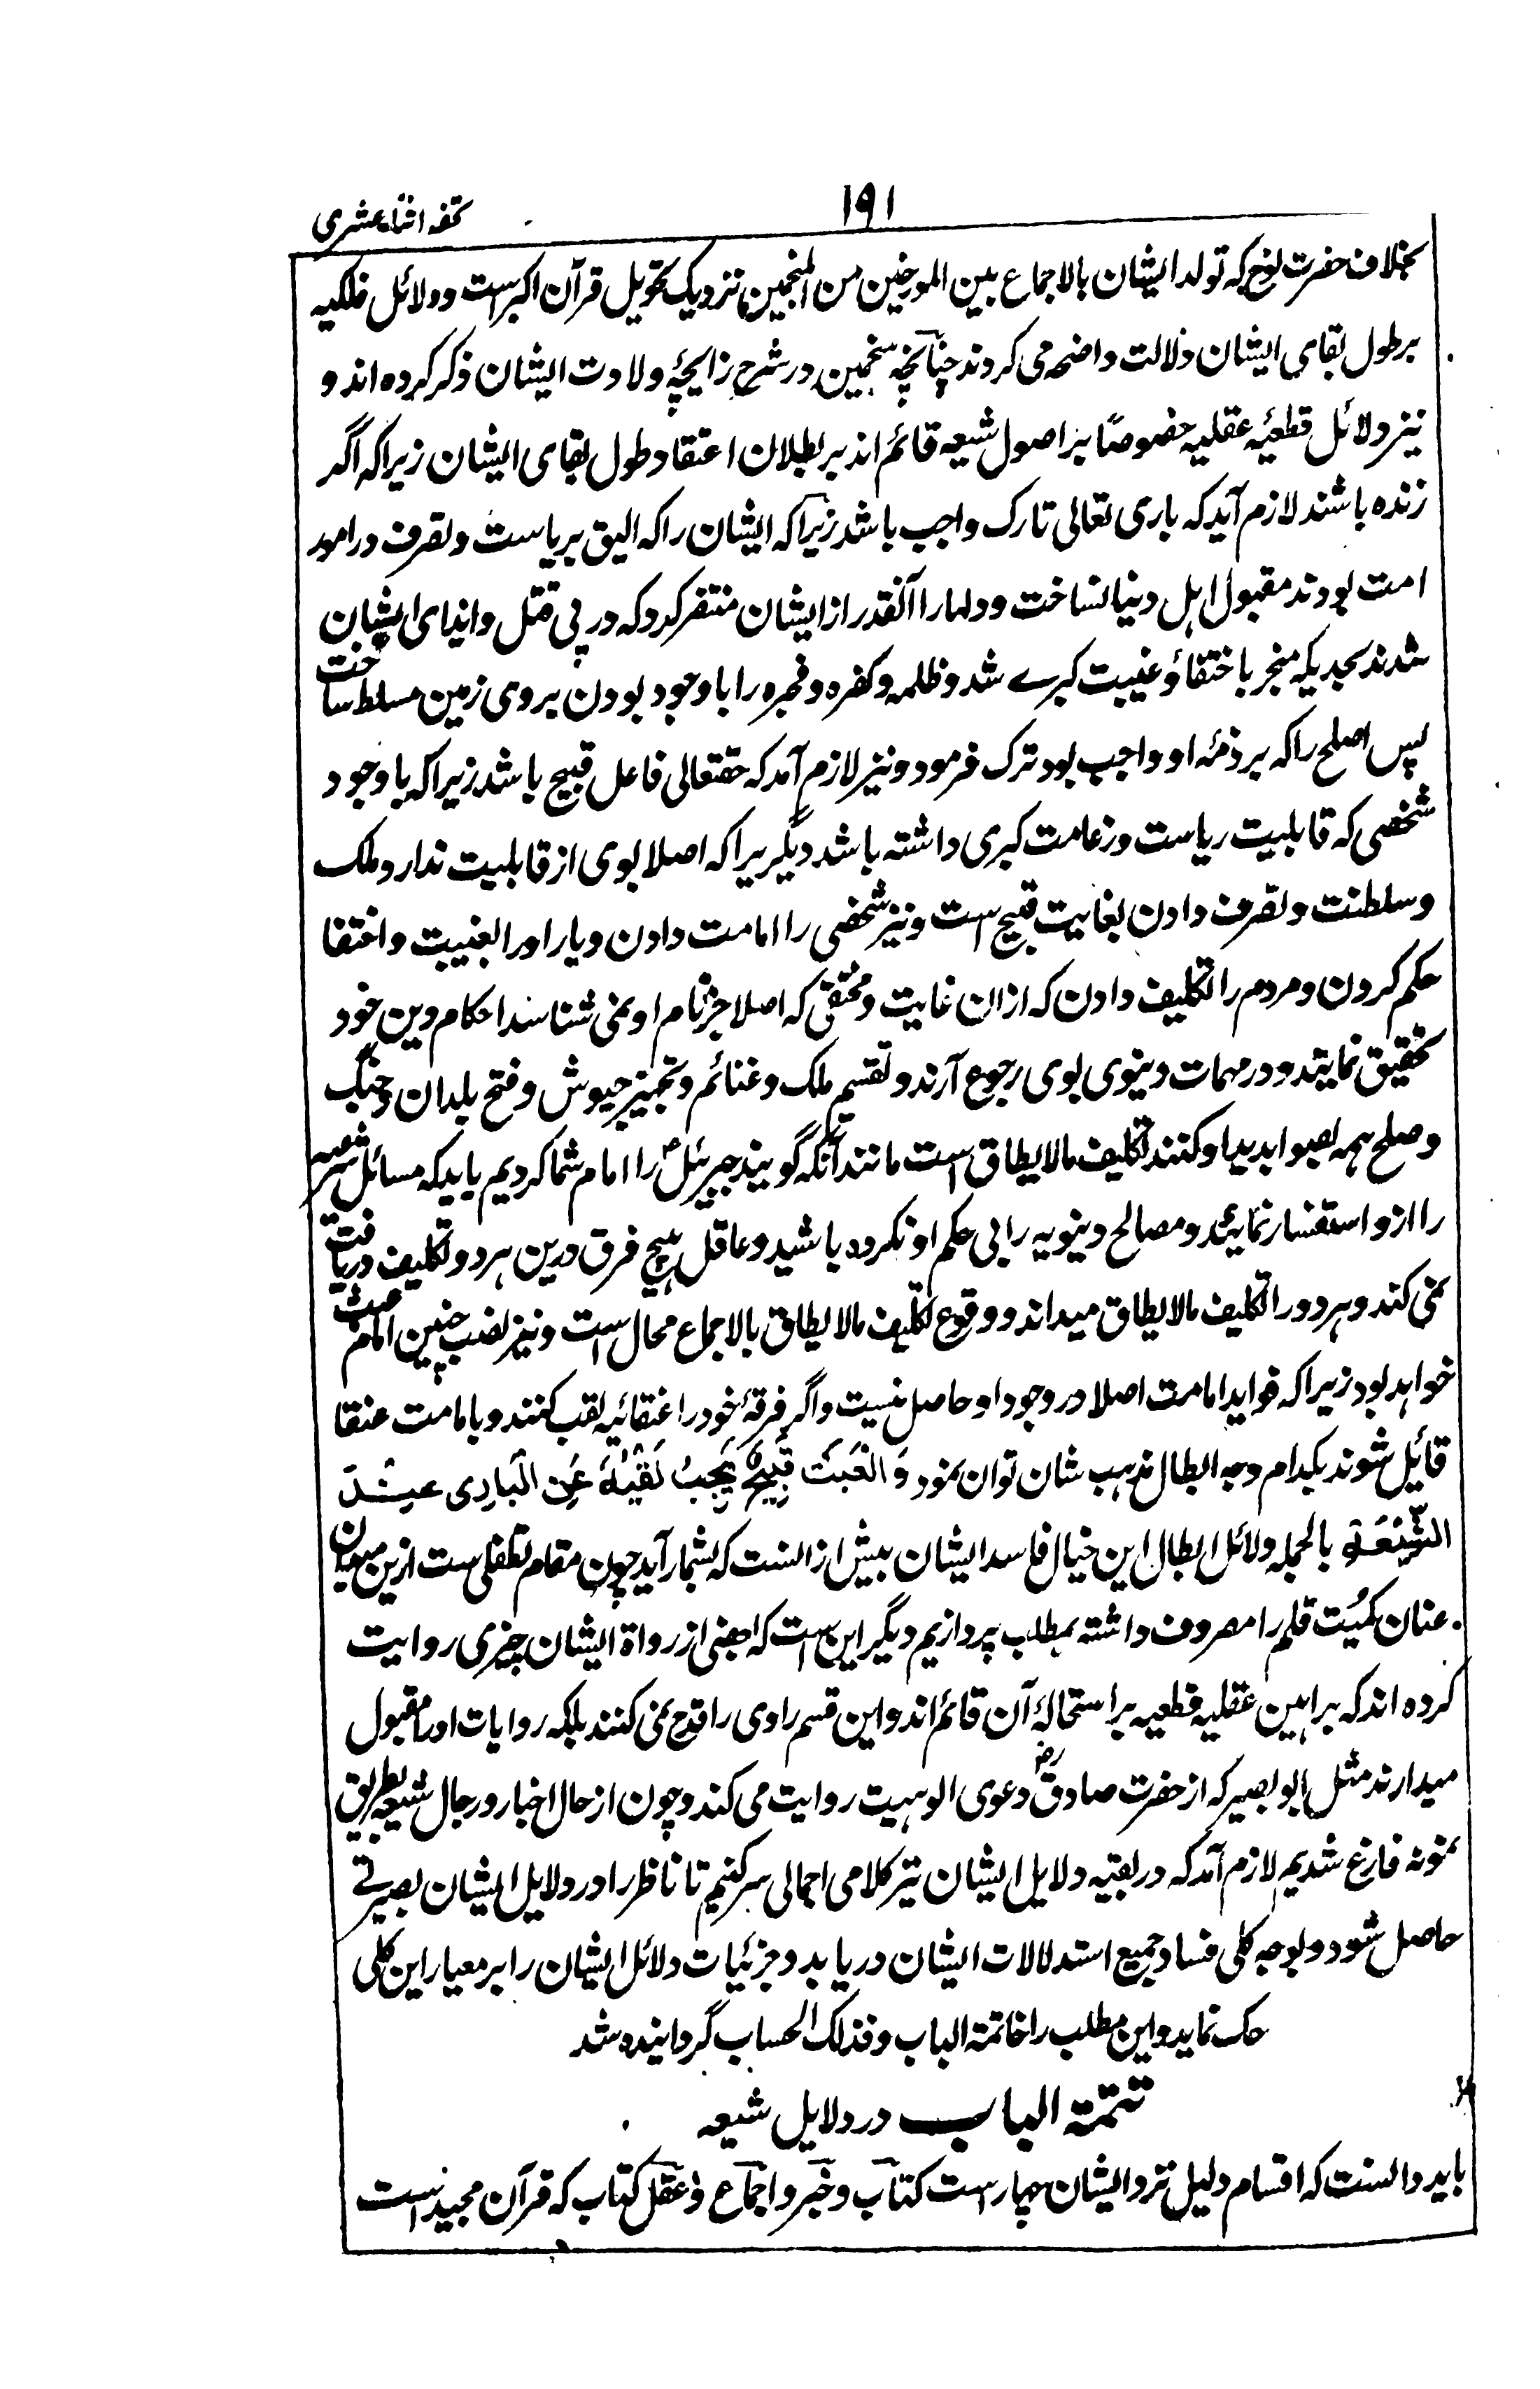 ۱۹۱
تحفه اثنا عشری
بخلاف حضرت نوح که تولد ایشان بالاجماع بین المورخین من المنجمین نزدیک تحویل قرآن اکبر است و دلائل فلکیه
بر طول بقای ایشان دلالت واضحه می کردند چنانچه منجمین در شرح زایچهٔ ولادت ایشان ذکر کرده اند و
نیز دلائل قطعیهٔ عقلیه خصوصاً بر اصول شیعه قائم اند بر بطلان اعتقاد طول بقای ایشان زیرا که اگر
زنده باشند لازم آید که باری تعالی تارک واجب باشد زیرا که ایشان را که الیق بریاست و تصرف در امور
امت بودند مقبول اهل دنیا نساخت و دلها را آنقدر از ایشان متنفر کرد که در پی قتل و ایذای ایشان
شدند بحدیکه منجر باختفاؤ غیبت کبرے شد و ظلمه و کفره و فجره را با وجود بودن بر روی زمین مسلط ساخت
پس اصلح را که بر ذمهٔ او واجب بود ترک فرمود و نیز لازم آمد که حقتعالی فاعل قبیح باشد زیرا که با وجود
شخصی که قابلیت ریاست و زعامت کبری داشته باشد دیگریرا که اصلا بوی از قابلیت ندارد ملک
و سلطنت و تصرف دادن بغایت قبیح است و نیز شخصی را امامت دادن و یار او را بغیبت و اختفا
حکم کردن و مردم را تکلیف دادن که ازان غایت و مختفی که اصلا جز نام او نمی شناسد احکام دین خود
تحقیق نمایند و در مهمات دنیوی بوی رجوع آرند و تقسیم ملک و غنائم و تجهیز جیوش و فتح بلدان و جنگ
و صلح همه بصوابدید او کنند تکلیف مالایطاق است مانند آنکه گویند جبرئیل را امام شما کردیم باید که مسائل شرعیه
را ازو استفسار نمایند و مصالح دنیویه را بی حکم او نکرده باشید و عاقل هیچ فرق درین هر دو تکلیف دریافت
نمی کند و هر دو را تکلیف مالایطاق میداند و وقوع تکلیف مالایطاق بالاجماع محال است و نیز نصب چنین امام عبث
خواهد بود زیرا که فواید امامت اصلا در وجود او حاصل نیست و اگر فرقهٔ خود را عنقائیه لقب کنند و بامامت عنقا
قائل شوند بکدام وجه ابطال مذهب شان توان نمود وَ العَبَثُ قَبِیحٌ یَجِبُ نَفْیُهُ عَنِ البَارِی عِنْدَ
الشِّیْعَةِ بالجمله دلائل ابطال این خیال فاسد ایشان بیش از انست که بشمار آید چون مقام تطفلی ست ازین میدان
عنان کمیُت قلم را مصروف داشته بمطلب پردازیم دیگر این است که بعضی از رواة ایشان چیزی روایت
کرده اند که براهین عقلیه قطعیه بر استحالهٔ آن قائم اند و این قسم راوی را قدح نمی کنند بلکه روایات او را مقبول
میدارند مثل ابو بصیر که از حضرت صادق رض دعوی الوهیت روایت می کند و چون از حال اخبار و رجال شیعه بطریق
نمونه فارغ شدیم لازم آمد که در بقیه دلایل ایشان نیز کلامی اجمالی سر کنیم تا ناظر را در دلایل ایشان بصیرتے
حاصل شود و بوجه کلی فساد جمیع استدلالات ایشان دریابد و جزئیات دلائل ایشان را بر معیار این کلی
حک نماید و این مطلب را خاتمة الباب و فذلک الحساب گردانیده شد
تتمة الباب در دلایل شیعه
باید دانست که اقسام دلیل نزد ایشان چهار است کتاب و خبر و اجماع و عقل کتاب که قرآن مجید است